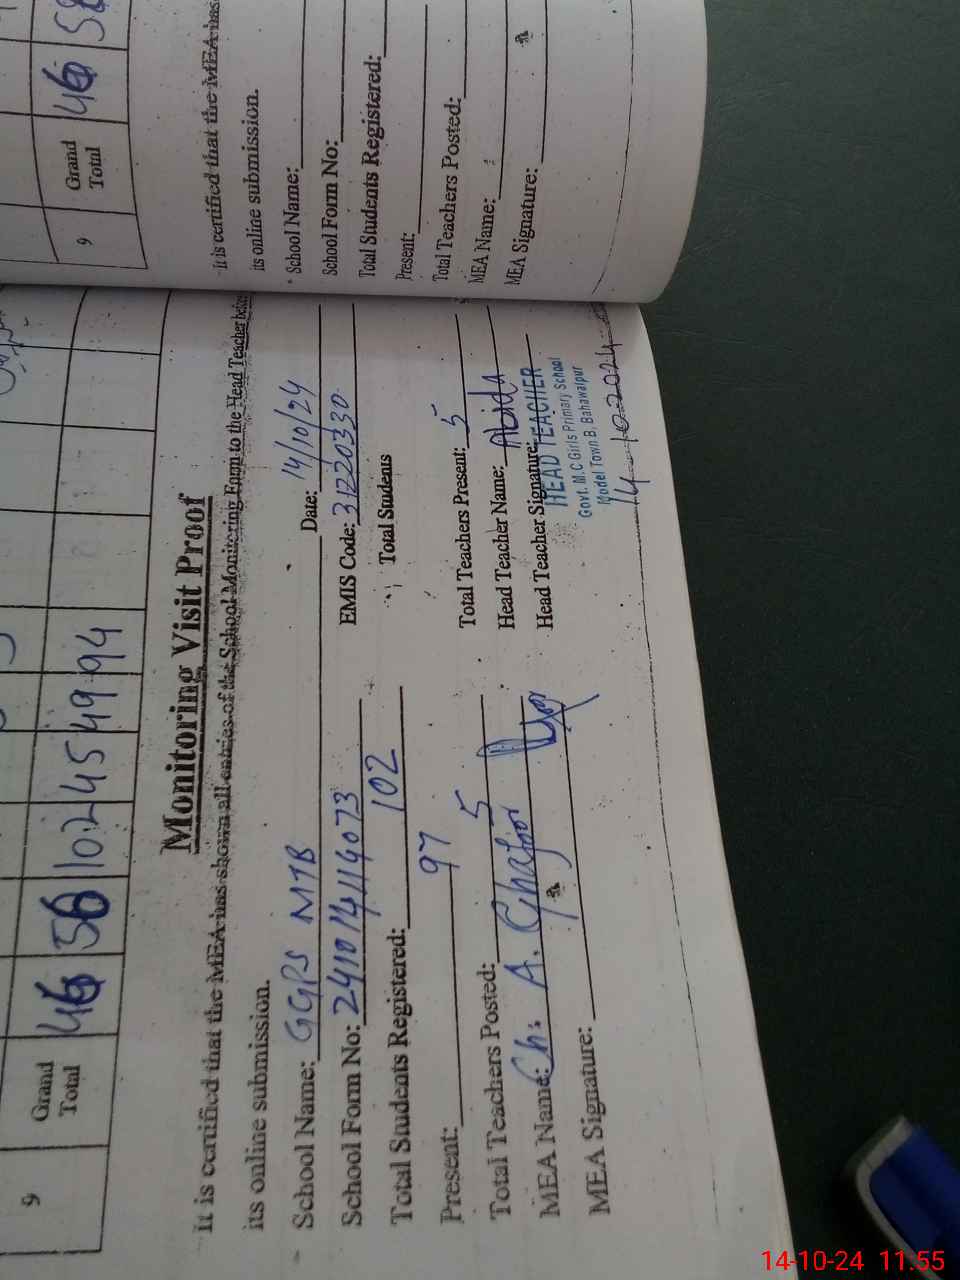 9 Grand Total 46 56 102 45 49 94
Monitoring Visit Proof
It is certified that the MEA has shown all entries of the School Monitoring Form to the Head Teacher before
its online submission.
School Name: GGPS MTB Date: 14/10/24
School Form No: EMIS Code: 31220330
Total Students Registered: 102 Total Students
Present: 97
Total Teachers Posted: 5 Total Teachers Present: 5
MEA Name: Ch. A. Ghafoor Head Teacher Name: Abida
MEA Signature: Head Teacher Signature:
HEAD TEACHER
Govt. M.C Girls Primary School
Model Town B, Bahawalpur
14-10-2024
9 Grand Total 46
It is certified that the MEA has
its online submission.
School Name:
School Form No:
Total Students Registered:
Present:
Total Teachers Posted:
MEA Name:
MEA Signature:
14-10-24 11.55